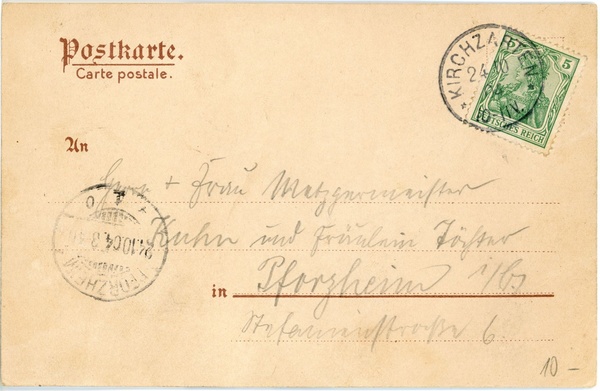 Postkarte.
Carte postale.
KIRCHZARTEN
24
10-11V.
5
DEUTSCHES REICH
An
Herr + Frau Metzgermeister
Kuhn und Fräulein Töchter
in Pforzheim i/B
Stefanienstraße 6.
PFORZHEIM
24.10.04.
10-